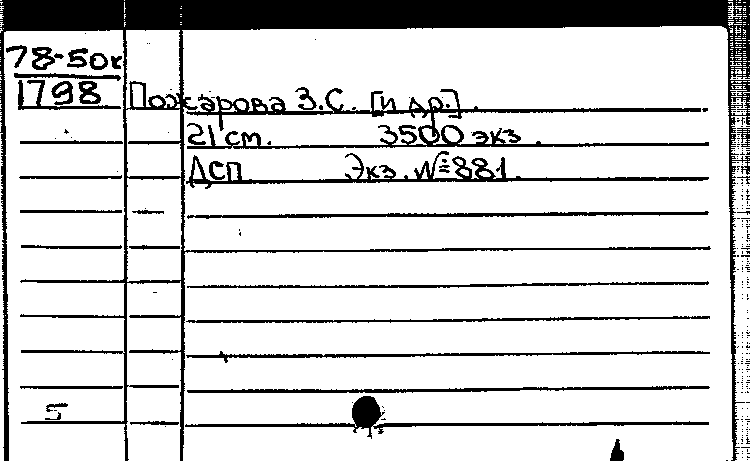 78-50к
1798 Пожарова З.С. [и др.].
21 см. 3500 экз.
ДСП Экз. №881.
5